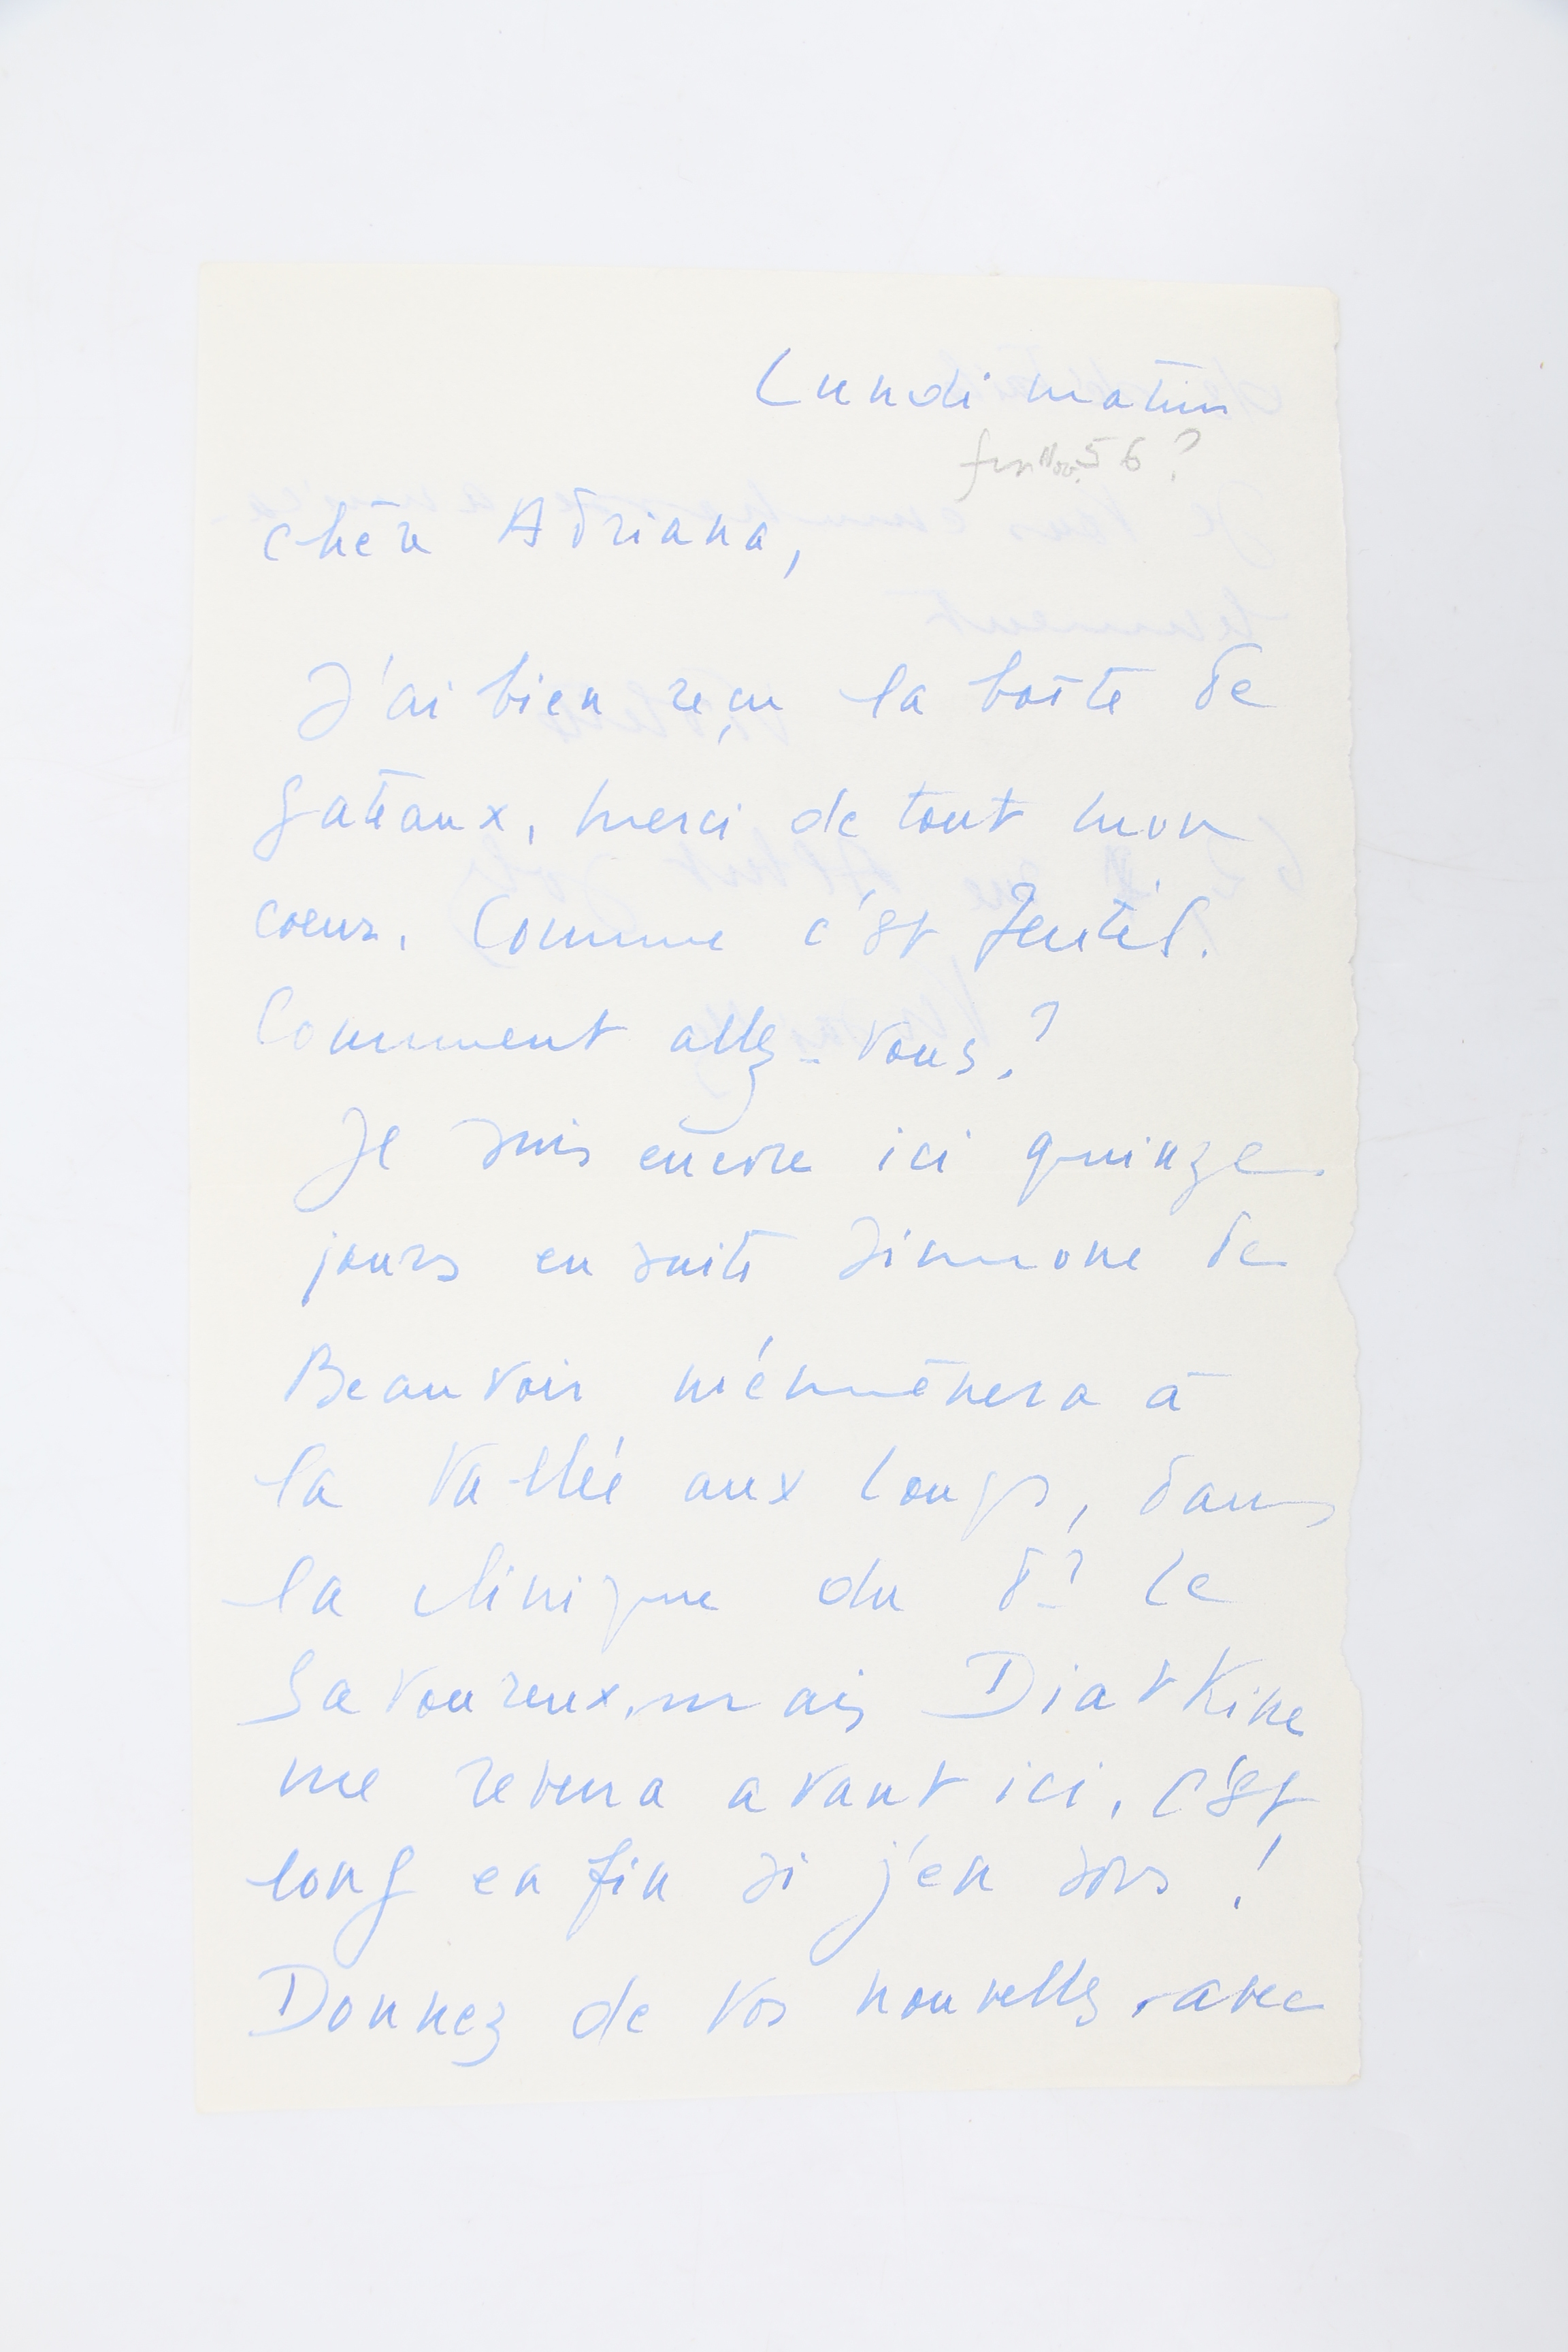 Lundi matin
fin Nov. 56 ?
Chère Adriana,
J'ai bien reçu la boîte de
gateaux, merci de tout mon
coeur. Comme c'est gentil.
Comment allez-vous ?
Je suis encore ici quinze
jours en suite Simone de
Beauvoir m'émmènera à
la Vallée aux Loups, dans
la clinique du dr Le
Savoureux, mais Diatkine
me reverra avant ici. C'est
long en fin si j'en sors !
Donnez de vos nouvelles, avec